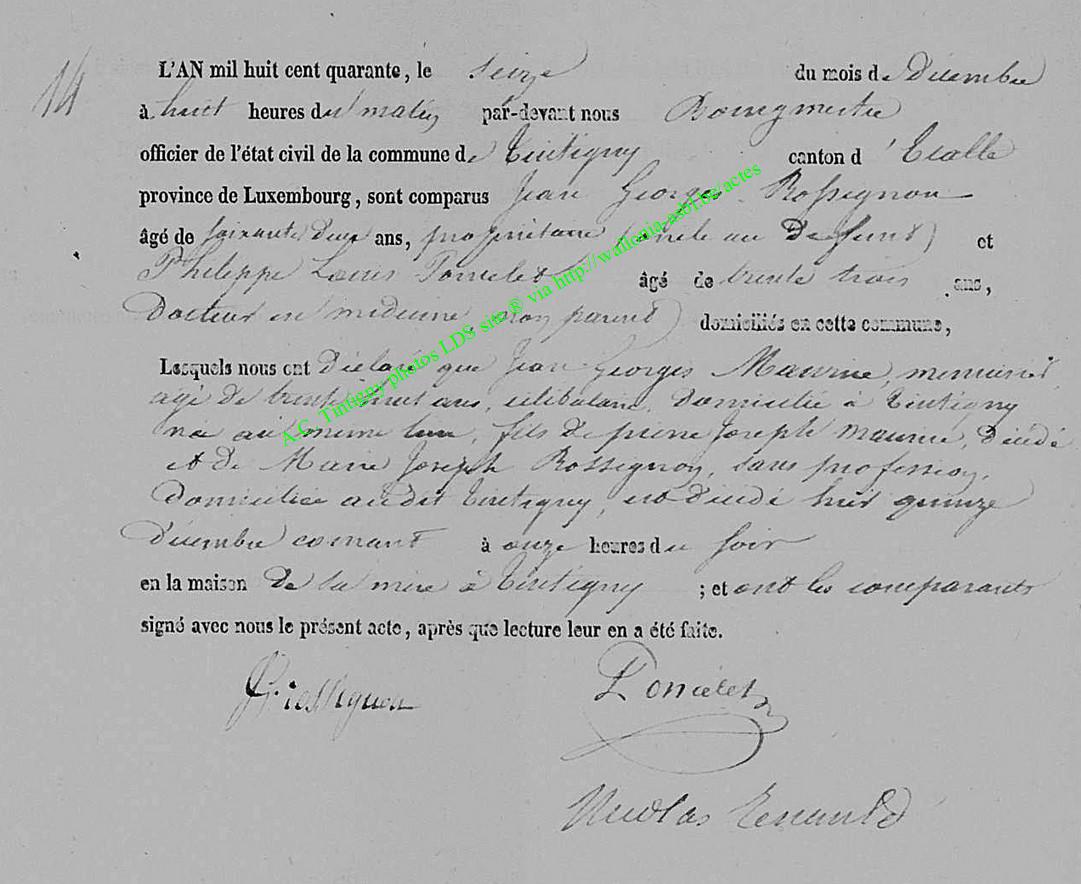 14
L'AN mil huit cent quarante, le Seize du mois de Décembre
à huit heures du matin par-devant nous Bourgmestre
officier de l'état civil de la commune de Tintigny canton d'Etalle
province de Luxembourg, sont comparus Jean Georges Rossignon
âgé de soixante deux ans, propriétaire (oncle au Defunt) et
Philippe Louis Poncelet âgé de trente trois ans,
Docteur en médecine, non parent) domiciliés en cette commune,
Lesquels nous ont Déclaré que Jean Georges Maurice, menuisier
agé de trente huit ans, célibataire, Domicilié à Tintigny
né au même lieu, fils de pierre Joseph Maurice, Décédé
et de Marie Joseph Rossignon, sans profession,
Domiciliée audit Tintigny, est Décédé hier quinze
Décembre courant à onze heures du soir
en la maison De sa mère à Tintigny ; et ont les comparants
signé avec nous le présent acte, après que lecture leur en a été faite.
Rossignon Poncelet
Nicolas
A.C. Tintigny photos LDS site ® via http://wallonia-asbl.be/actes